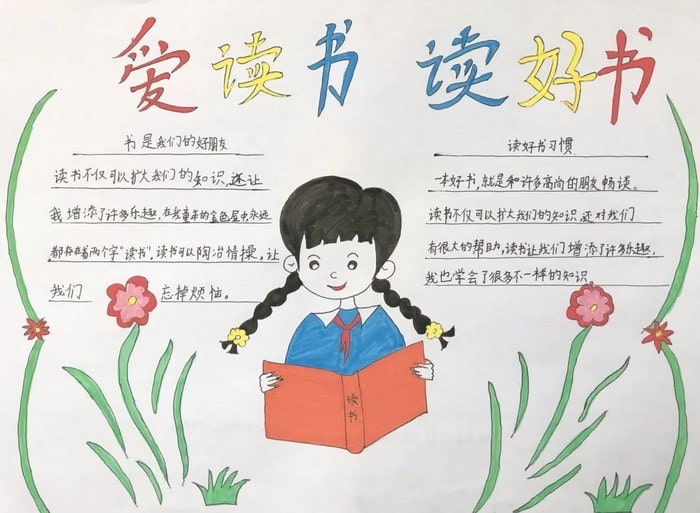 爱读书 读好书
书是我们的好朋友
读书不仅可以扩大我们的知识,还让
我增添了许多乐趣,在我童年的金色屋中永远
都存在着两个字"读书",读书可以陶冶情操,让
我们 忘掉烦恼。
读好书习惯
一本好书,就是和许多高尚的朋友畅谈。
读书不仅可以扩大我们的知识,还对我们
有很大的帮助,读书让我们增添了许多乐趣,
我也学会了很多不一样的知识。
读书